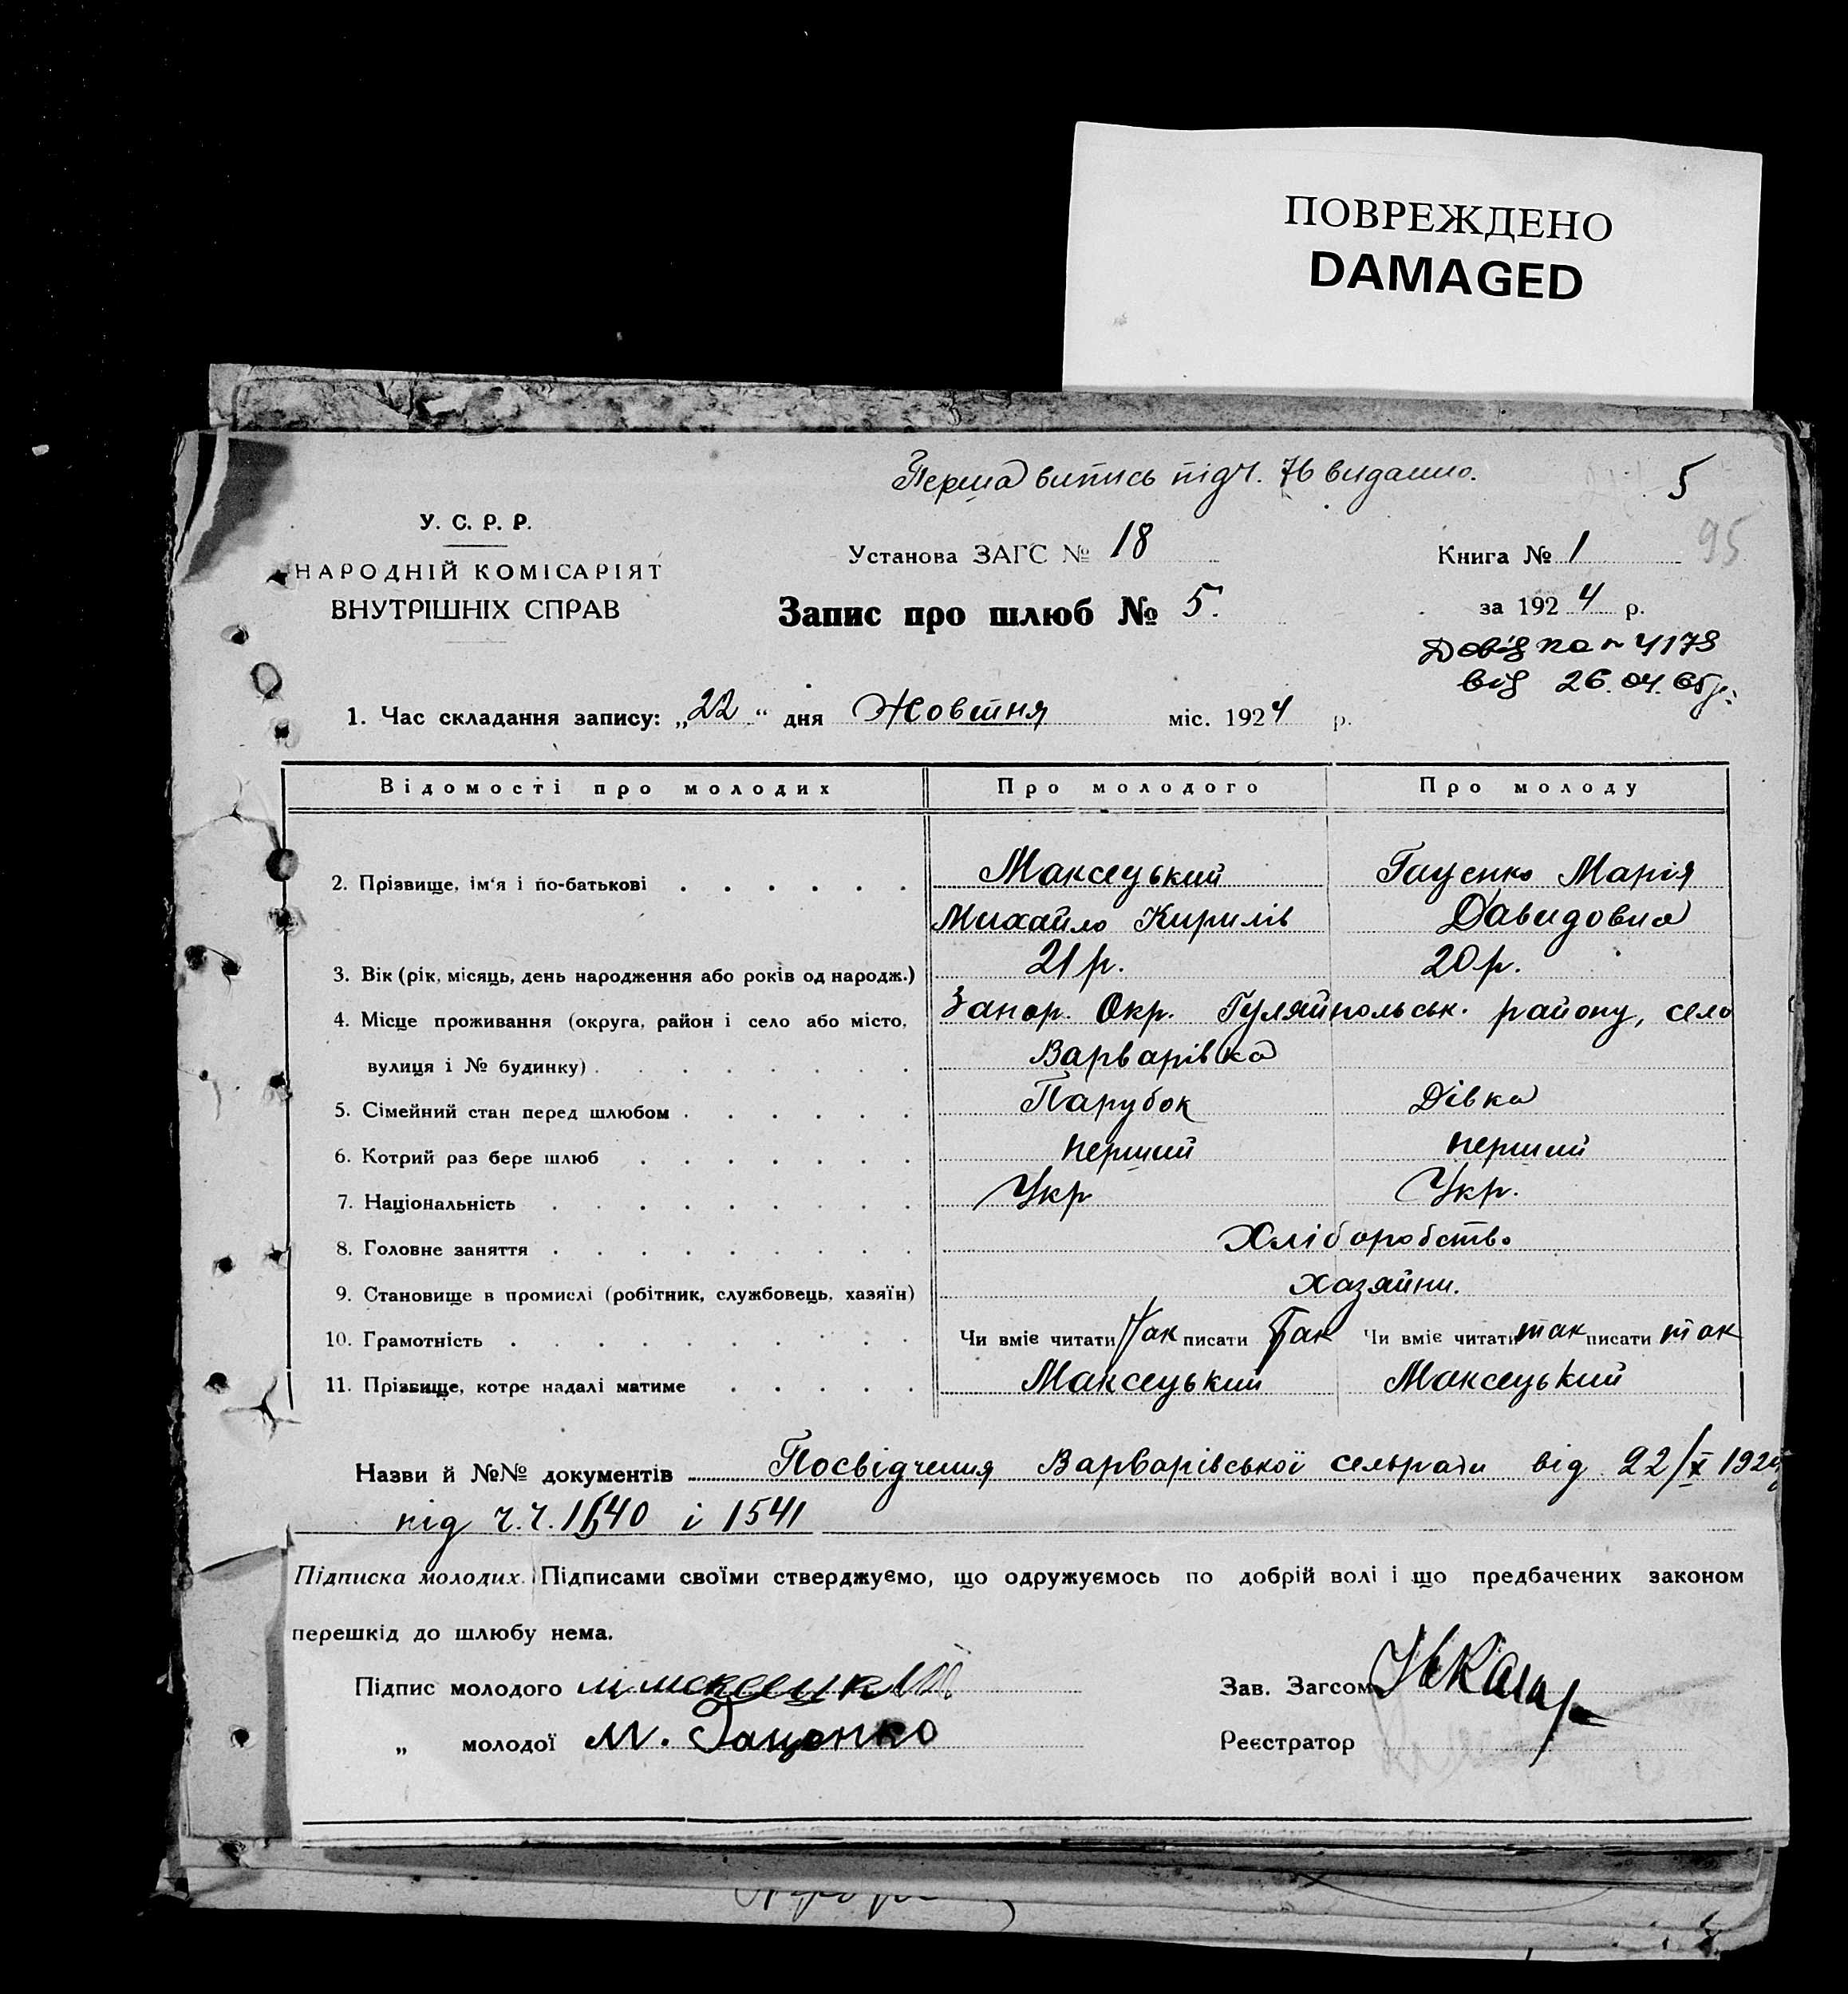 ПОВРЕЖДЕНО
DAMAGED
Перша випись під ч. 76 видано.
5
95
У. С. Р. Р.
НАРОДНІЙ КОМІСАРІЯТ
ВНУТРІШНІХ СПРАВ
Установа ЗАГС № 18
Запис про шлюб № 5.
Книга № 1
за 1924 р.
Довідка № 4173
від 26.04.05р.
1. Час складання запису: „22“ дня Жовтня міс. 1924 р.
Відомості про молодих Про молодого Про молоду
Максецький Гаценко Марія
2. Прізвище, ім'я і по-батькові
Михайло Кирилів Давидовна
3. Вік (рік, місяць, день народження або років од народж.) 21 р. 20 р.
4. Місце проживання (округа, район і село або місто, Запор. Окр. Гуляйпольськ. району, село
вулиця і № будинку) Варварівка
5. Сімейний стан перед шлюбом Парубок Дівка
6. Котрий раз бере шлюб перший перший
7. Національність Укр Укр.
8. Головне заняття Хліборобство
9. Становище в промислі (робітник, службовець, хазяїн) хазяйни.
10. Грамотність Чи вміє читати Так писати Так Чи вміє читати так писати так
11. Прізвище, котре надалі матиме Максецький Максецький
Назви й №№ документів Посвідчення Варварівської сельради від 22/X 1924
під ч.ч. 1540 і 1541
Підписка молодих. Підписами своїми стверджуємо, що одружуємось по добрій волі і що предбачених законом
перешкід до шлюбу нема.
Підпис молодого Зав. Загсом
„ молодої М. Гаценко Реєстратор